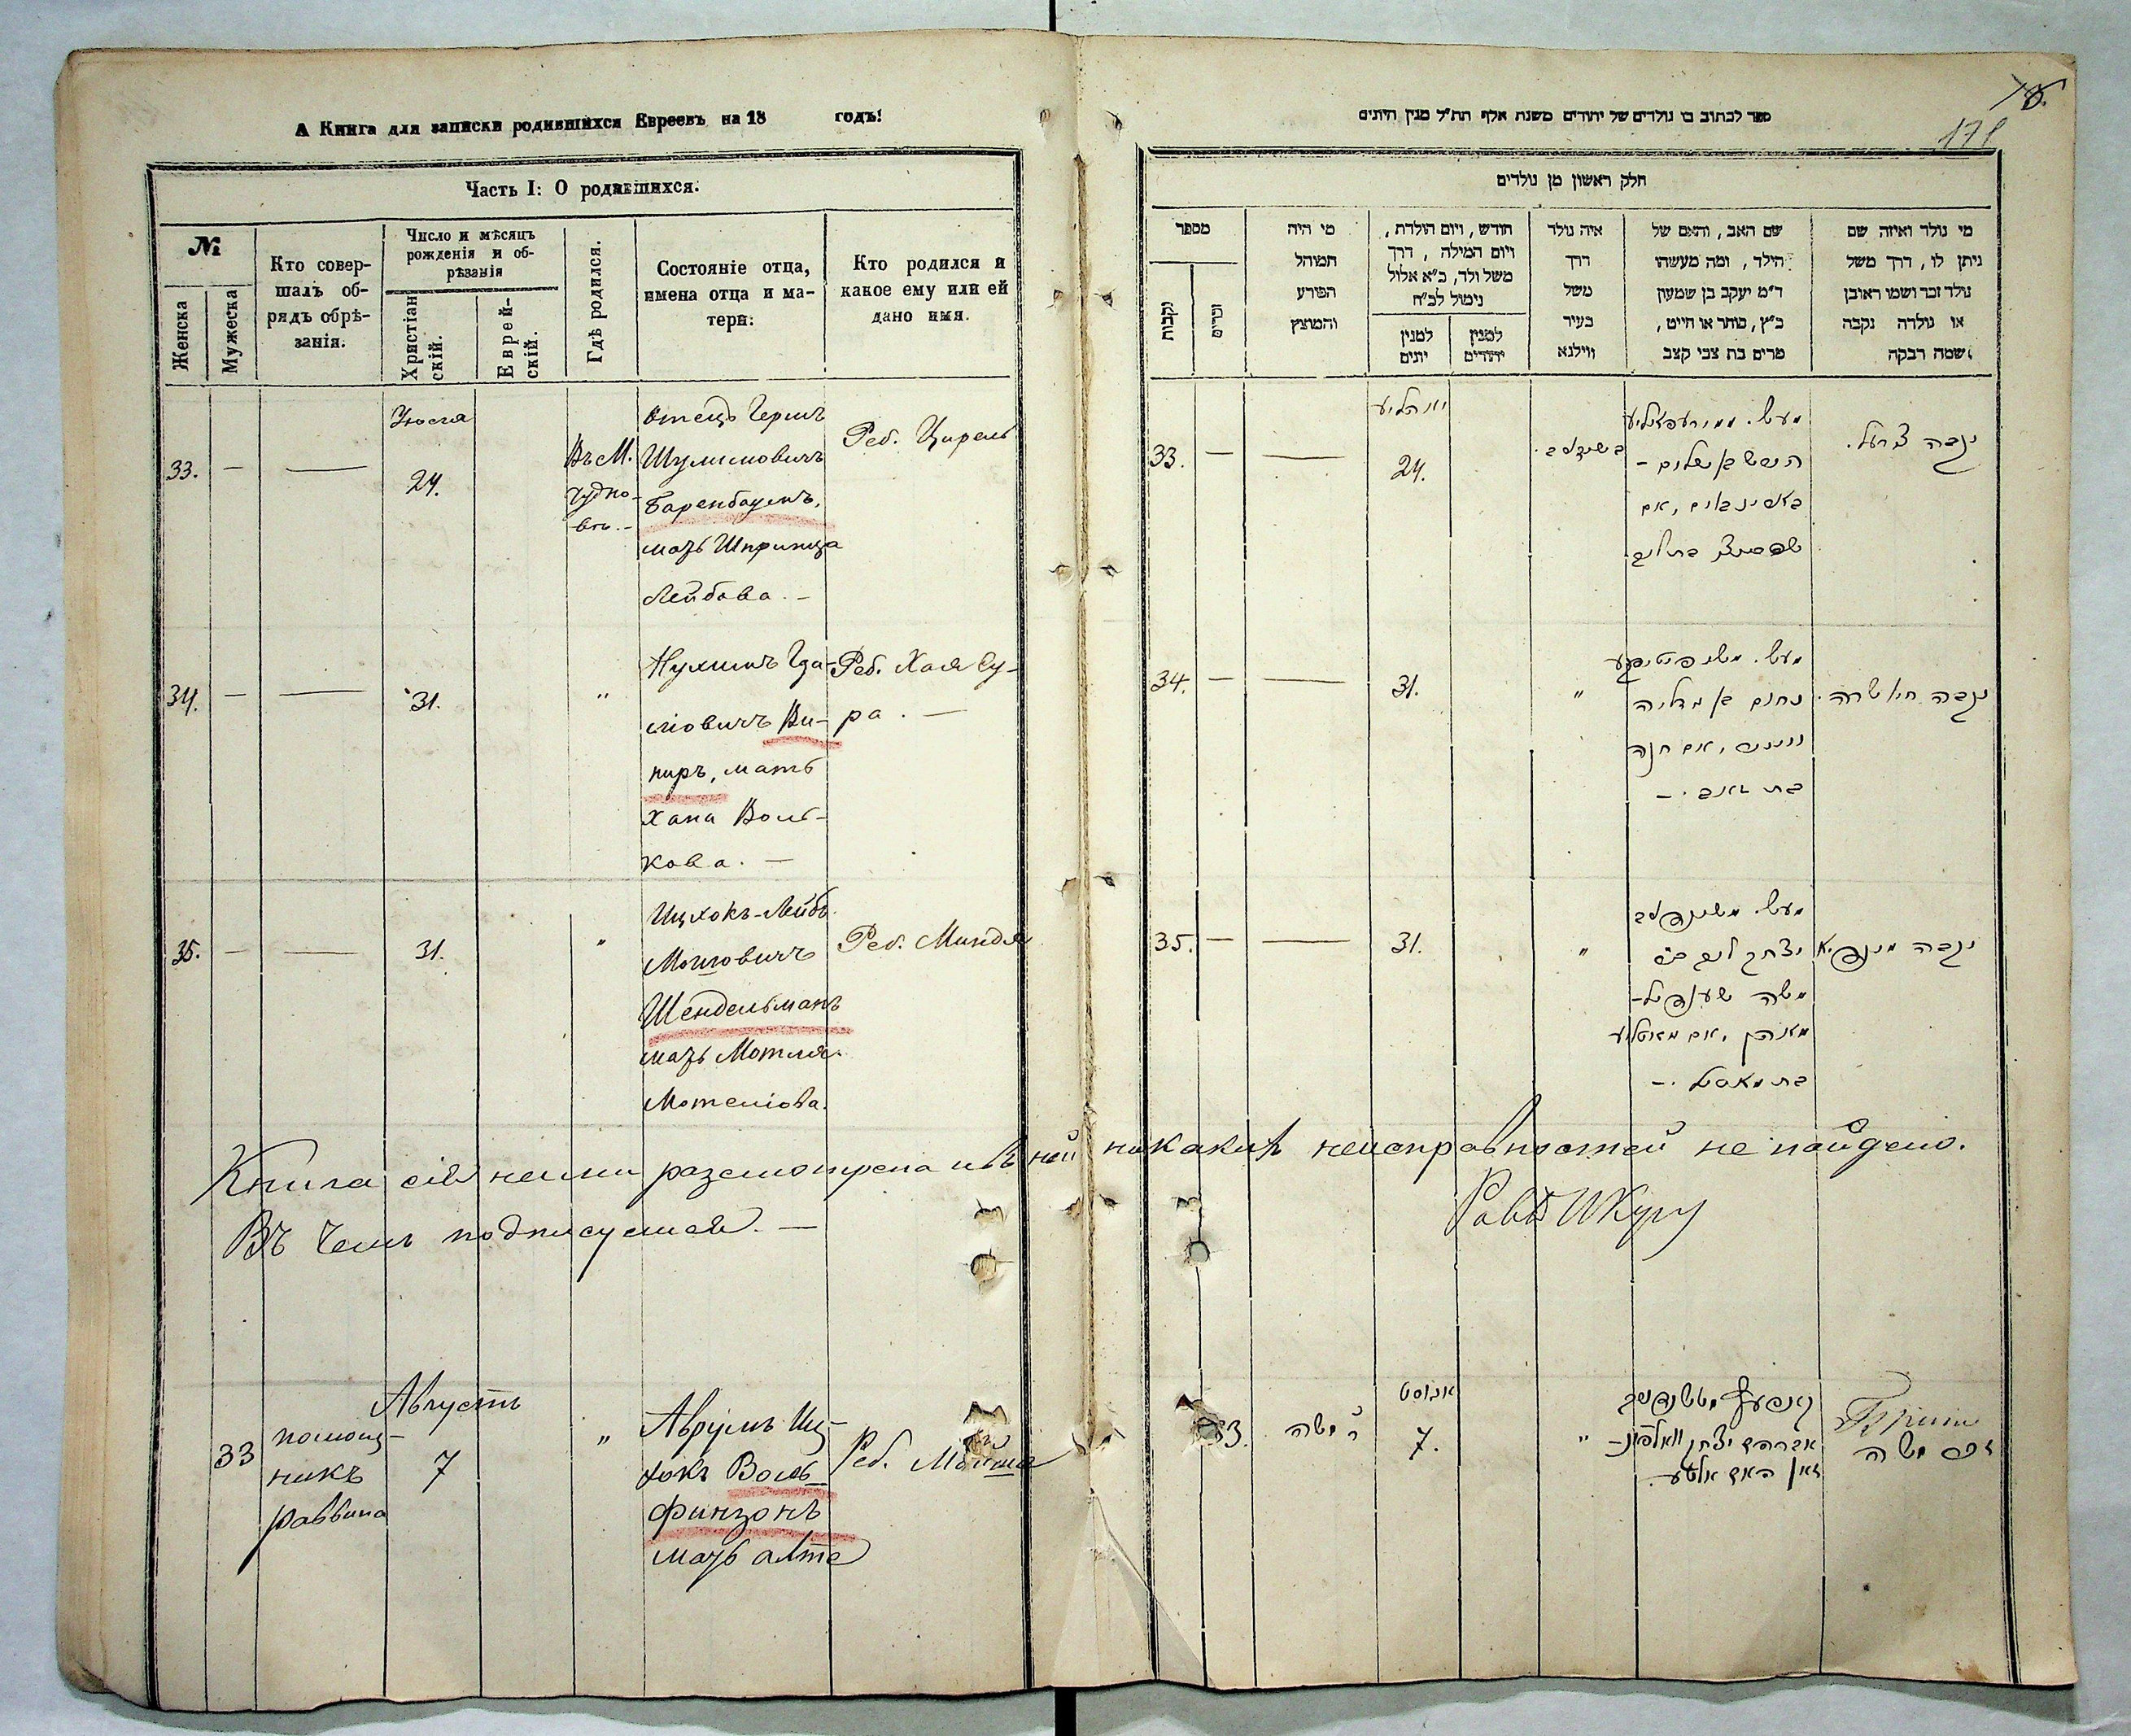 А Книга для записки родившихся Евреевъ на 18 годъ:
Часть I: О родившихся.
№
Женска
Мужеска
Кто совер-
шалъ об-
рядъ обрѣ-
занія.
Число и мѣсяцъ
рожденія и об-
рѣзанія
Христіан
скій.
Еврей-
скій.
Гдѣ родился.
Состояніе отца,
имена отца и ма-
тери:
Кто родился и
какое ему или ей
дано имя.
33. — —
Іюля
24.
Въ М.
Чудно-
вѣ. -
Отецъ Гершъ
Шулимовичъ
Баренбаумъ,
мать Шпринца
Лейбова. -
Реб. Цирель
34. — —
31.
"
Нухимъ Гда-
ліовичъ Ви-
ниръ, мать
Хана Воль-
кова. —
Реб. Хая Су-
ра. —
35. — —
31.
"
Ицхокъ-Лейбъ
Мошковичъ
Шендельманъ
мать Мотля
Мотеліова.
Реб. Миндля
Книга сія нами разсмотрена и въ ней никакихъ неисправностей не найдено.
Въ чемъ подписуемся. —
33
помощ-
никъ
раввина
Августъ
7
"
Аврумъ Иц-
хокъ Воль-
финзонъ
мать Алте
Реб. Мошко
178
ספר לכתוב בו נולדים של יהודים משנת אלף תת״ל מנין היונים
חלק ראשון מן נולדים
מספר
נקבות
זכרים
מי היה
המוהל
הפורע
והמוצץ
חודש, ויום הולדת,
ויום המילה, דרך
משל ולד, כ״א אלול
נימול לכ״ח
למנין
יונים
למנין
יהודים
איה נולד
דרך
משל
בעיר
ווילנא
שם האב, והאם של
הילד, ומה מעשהו
ד״מ יעקב בן שמעון
כ״ץ, סוחר או חייט,
מרים בת צבי קצב
מי נולד ואיזה שם
ניתן לו, דרך משל
נולד זכר ושמו ראובן
או נולדה נקבה
ושמה רבקה
33. — —
24.
נקבה צרעל.
34. — —
31.
"
נחום
אם חנה
נקבה חיה שרה.
35. — —
31.
"
יצחק
משה שענדיל-
מאן, אם מאטליע
נקבה
Равв
33.
ר׳ משה
אוגוסט
7.
"
אברהם יצחק וואלפין-
זאן האם אלטע.
זכר משה